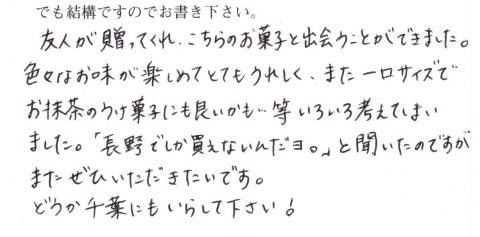 でも結構ですのでお書き下さい。
友人が贈ってくれ、こちらのお菓子と出会うことができました。
色々なお味が楽しめてとてもうれしく、また一口サイズで
お抹茶のうけ菓子にも良いかも…等いろいろ考えてしまい
ました。「長野でしか買えないんだヨ。」と聞いたのですが
またぜひいただきたいです。
どうか千葉にもいらして下さい!